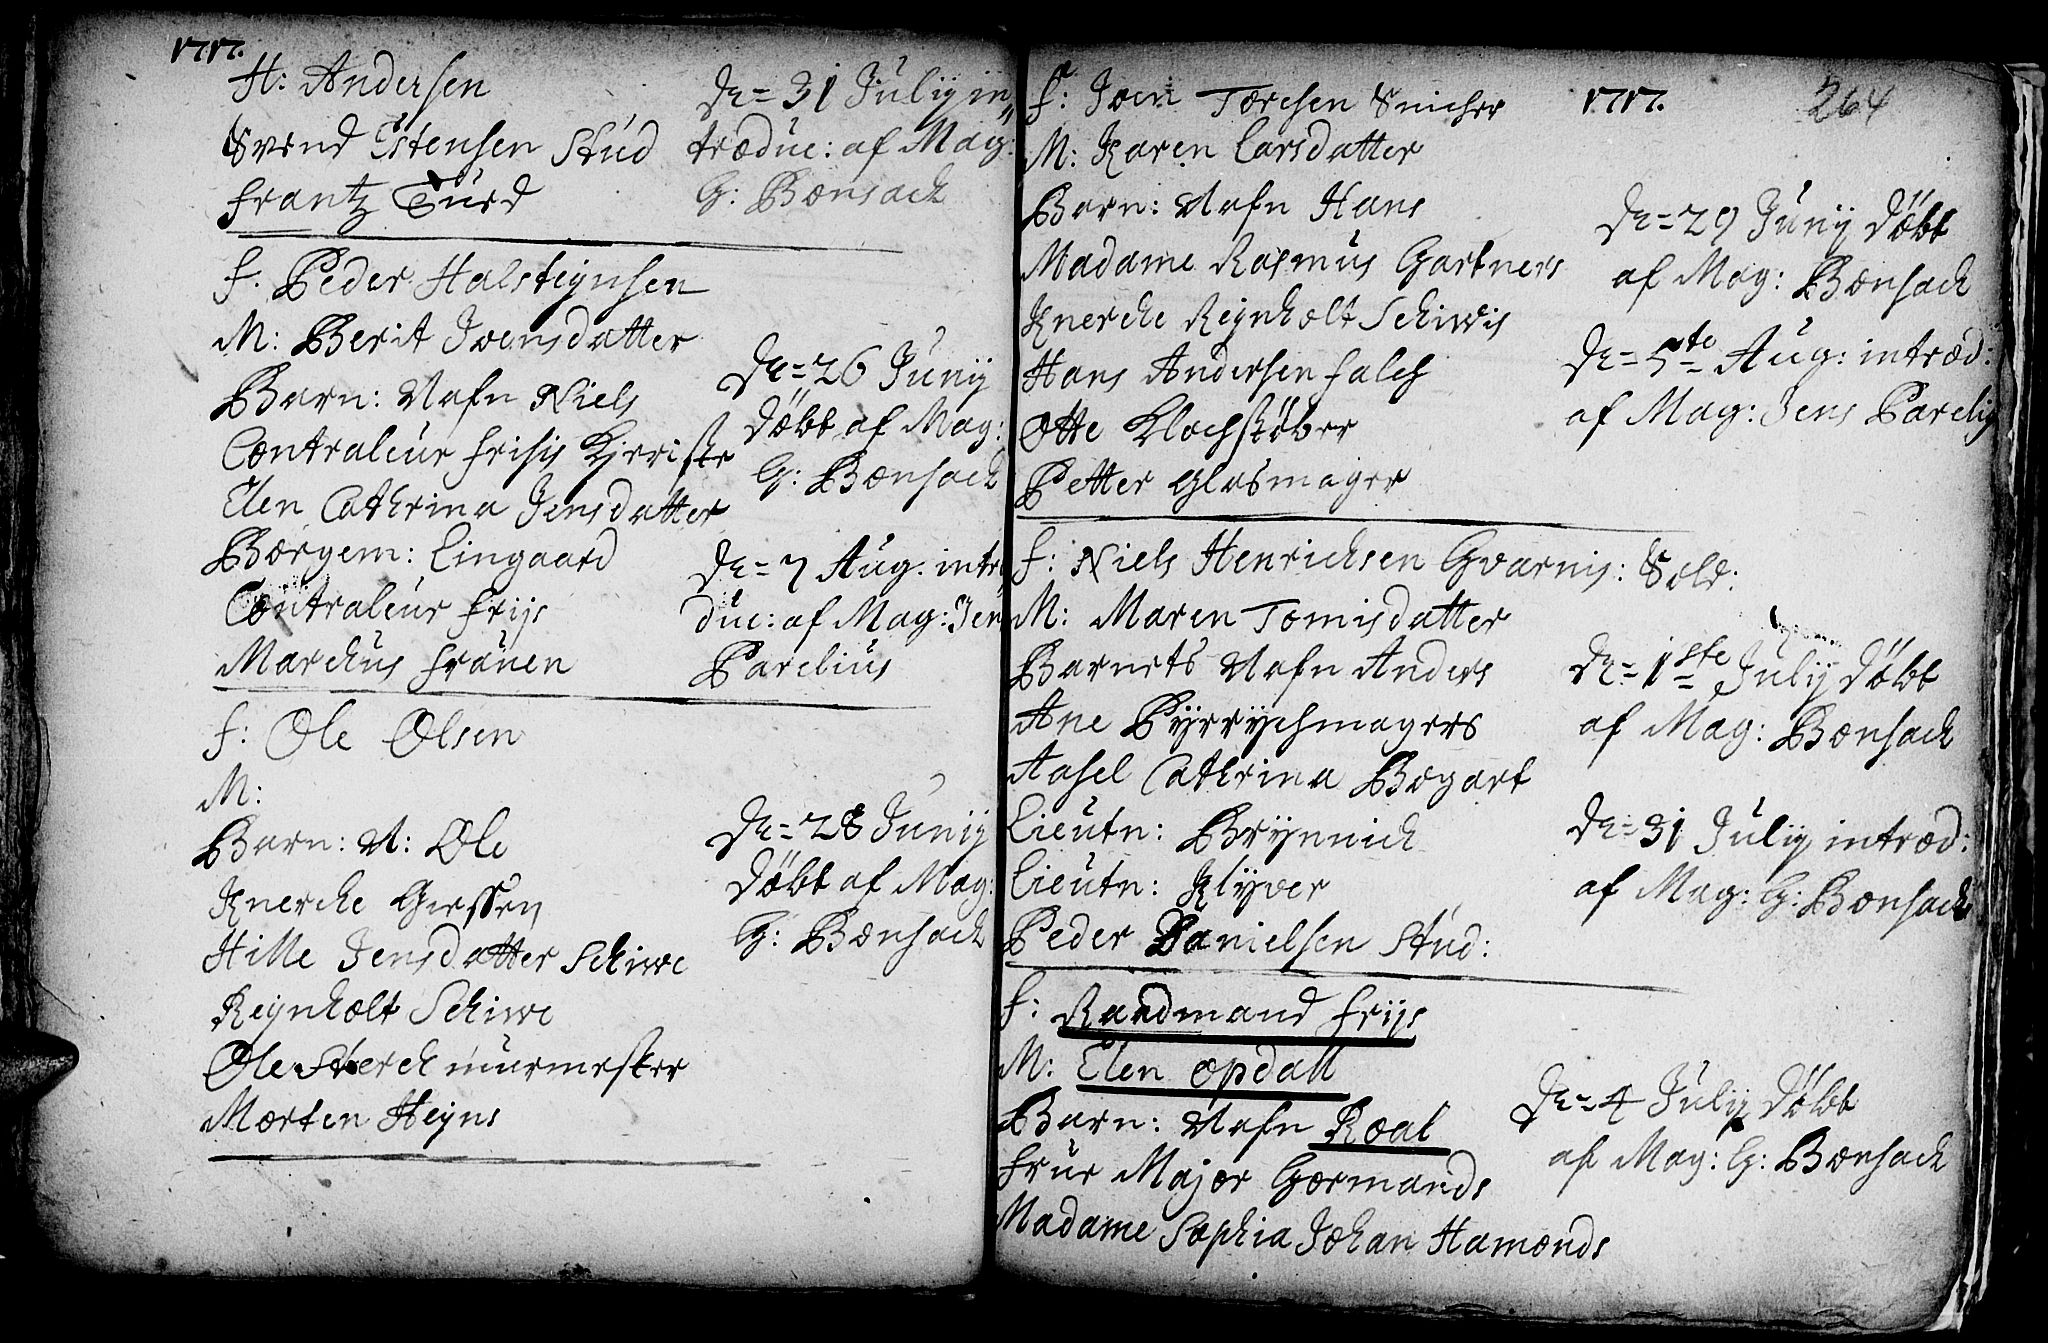 1717.
H: Andersen
Svend Estensen Stúd
Frantz Túrd
De= 31 Julij in
troduc: af Mag:
G: Bonsach
F. Peder Halsteynsen
M: Berit Joensdatter
Barn: Nafn Niels
Contraleur Frisis Kjeriste
Elen Cathrina Jensdatter
Borgem: Lingaard
Contraleur Frijs
Marchus Franen
De= 26 Junij
Døbt af Mag:
G: Bonsach
De= 7 Aug. intro
duc: af Mag: Jen
Parelius
F: Ole Olsen
M:
Barn: N: Ole
Knerche Giessen
Hille Jensdatter Schiwe
Reynholt Schiwe
Ole Sterch murmester
Morten Heyns
De= 28 Junij
Døbt af Mag:
G: Bonsach
1717. 264
F: Joen Torchen Snicher
M: Karen Larsdatter
Barn: Nafn Hans
Madame Rasmus Gartners
Knerche Reynholt Schiwis
Hans Andersen Falch
Otte Klochstøber
Petter Glasmager
De= 29 Junij Døbt
af Mag: Bonsach
De= 5te Aug: introd:
af Mag: Jens Pareliy
F: Niels Henrichsen Gvarnis: Sold:
M: Maren Tomisdatter
Barnets Nafn Anders
Ane Pyrrychmagers
Aasel Cathrina Bogart
Lieutn: Brynnich
Lieutn: Klyver
Peder Danielsen Stud:
De= 1ste Julij Døbt
af Mag: Bonsach
De= 31 Julij introd:
af Mag: G: Bonsach
F: Raadmand Frijs
M: Elen Opdall
Barn: Nafn Roal
Frue Major Gormands
Madame Sophia Johan Hamonds
De= 4 Julij Døbt
af Mag: G: Bonsach